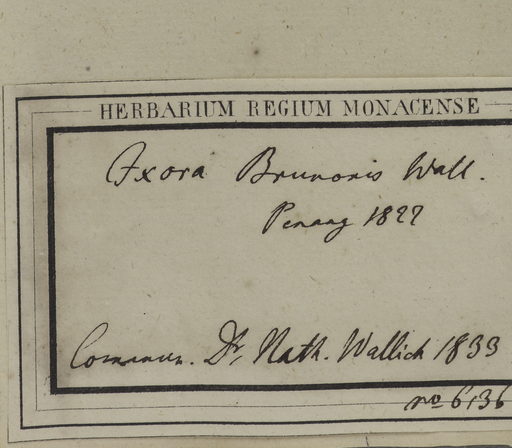 HERBARIUM REGIUM MONACENSE
Ixora Brunonis Wall.
Penang 1822
Commun. Dr. Nath. Wallich 1833
no 6136